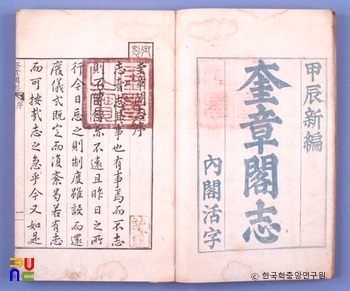 甲辰新編
奎章閣志
內閣活字
奎章閣志序
志者志其事也有事焉而不志
則
不遠且昨日之所
行今日忘之則制度雖設而還
廢儀式既定而復紊易若有志
而可按哉志之急乎今又如是
ⓒ 한국학중앙연구원